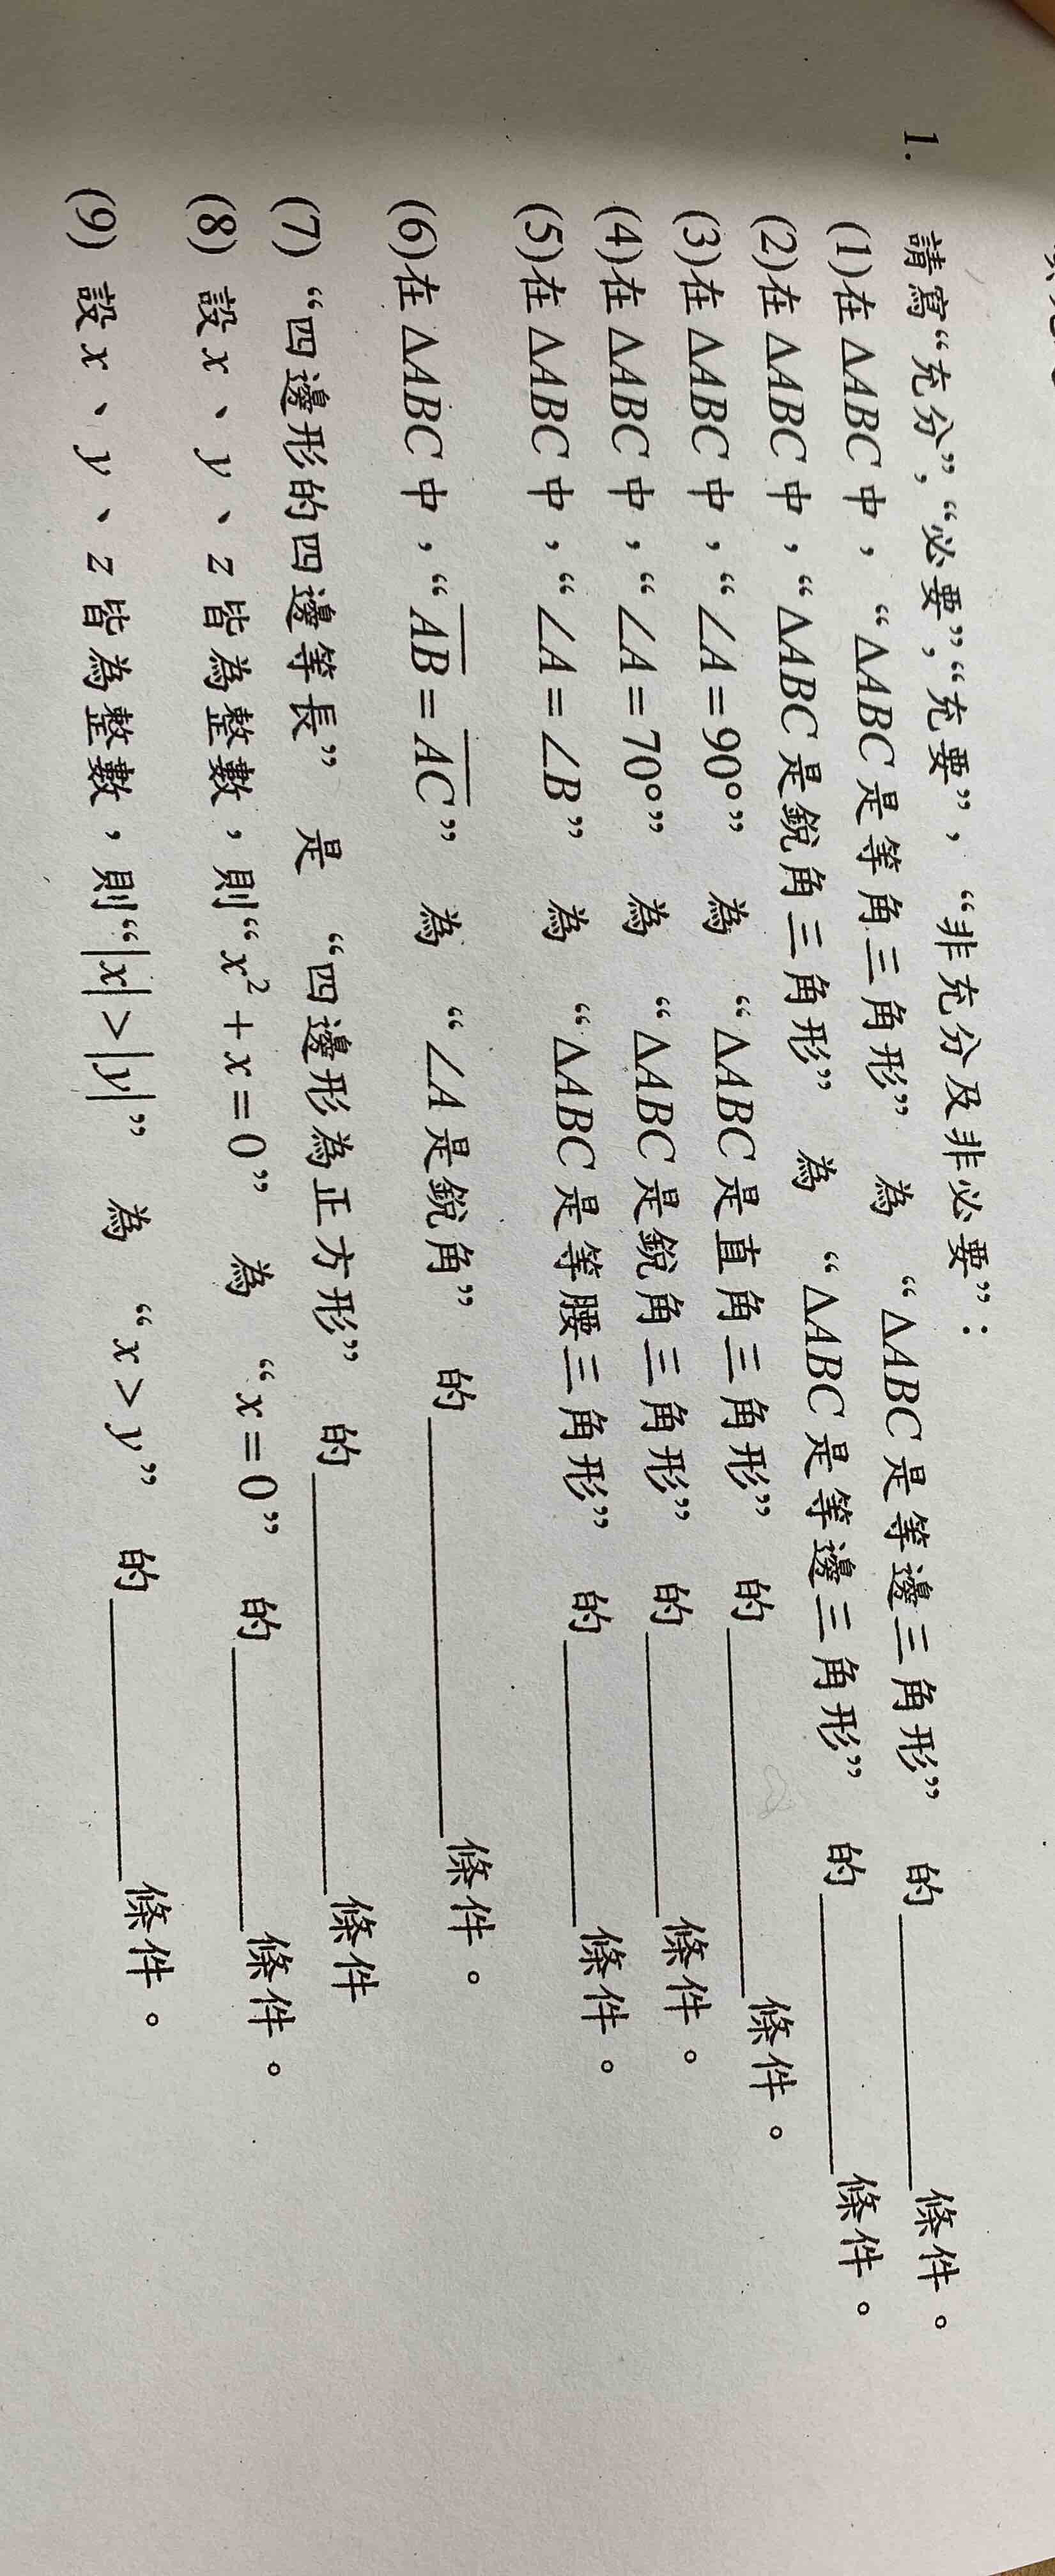 1. 請寫“充分”,“必要”,“充要”, “非充分及非必要”:
(1)在 ΔABC 中, “ΔABC 是等角三角形” 為 “ΔABC 是等邊三角形” 的________條件。
(2)在 ΔABC 中,“ΔABC 是銳角三角形” 為 “ΔABC 是等邊三角形” 的________條件。
(3)在 ΔABC 中,“∠A=90°” 為 “ΔABC 是直角三角形” 的________條件。
(4)在 ΔABC 中,“∠A=70°” 為 “ΔABC 是銳角三角形” 的________條件。
(5)在 ΔABC 中,“∠A=∠B” 為 “ΔABC 是等腰三角形” 的________條件。
(6)在 ΔABC 中,“A̅B̅=A̅C̅” 為 “∠A 是銳角” 的________條件。
(7) “四邊形的四邊等長” 是 “四邊形為正方形” 的________條件
(8) 設 x、y、z 皆為整數,則“x²+x=0” 為 “x=0” 的________條件。
(9) 設 x、y、z 皆為整數,則“|x|>|y|” 為 “x>y” 的________條件。